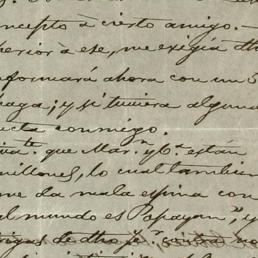 ncepto à cierto amigo.
perior à ese, me exigió dho
formará ahora con un S
haga; y si tuviera alguna
ducta conmigo.
que Mar.ª y 6.ª están
millones, lo cual tambien
me da mala espina con
el mundo es Popayan", y
de dho